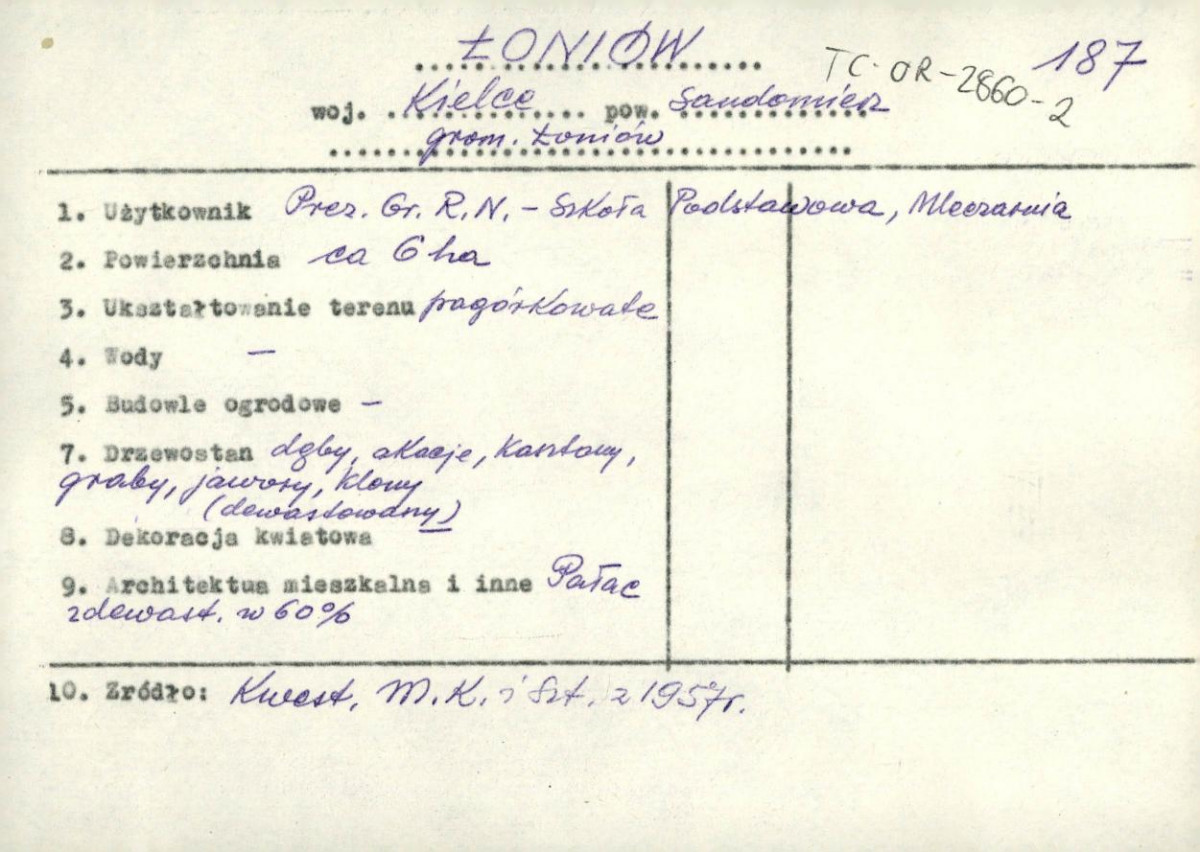 ŁONIÓW
TC-OR-2860-2 187
woj. Kielce pow. Sandomierz
grom. Łoniów
1. Użytkownik Prez. Gr. R.N. - Szkoła Podstawowa, Mleczarnia
2. Powierzchnia ca 6 ha
3. Ukształtowanie terenu pagórkowate
4. Wody -
5. Budowle ogrodowe -
7. Drzewostan dęby, akacje, kasztany,
graby, jawory, klony
(dewastowany)
8. Dekoracja kwiatowa
9. Architektua mieszkalna i inne Pałac
zdewast. w 60%
10. Zródło: Kwest. M.K. i Szt. z 1957r.